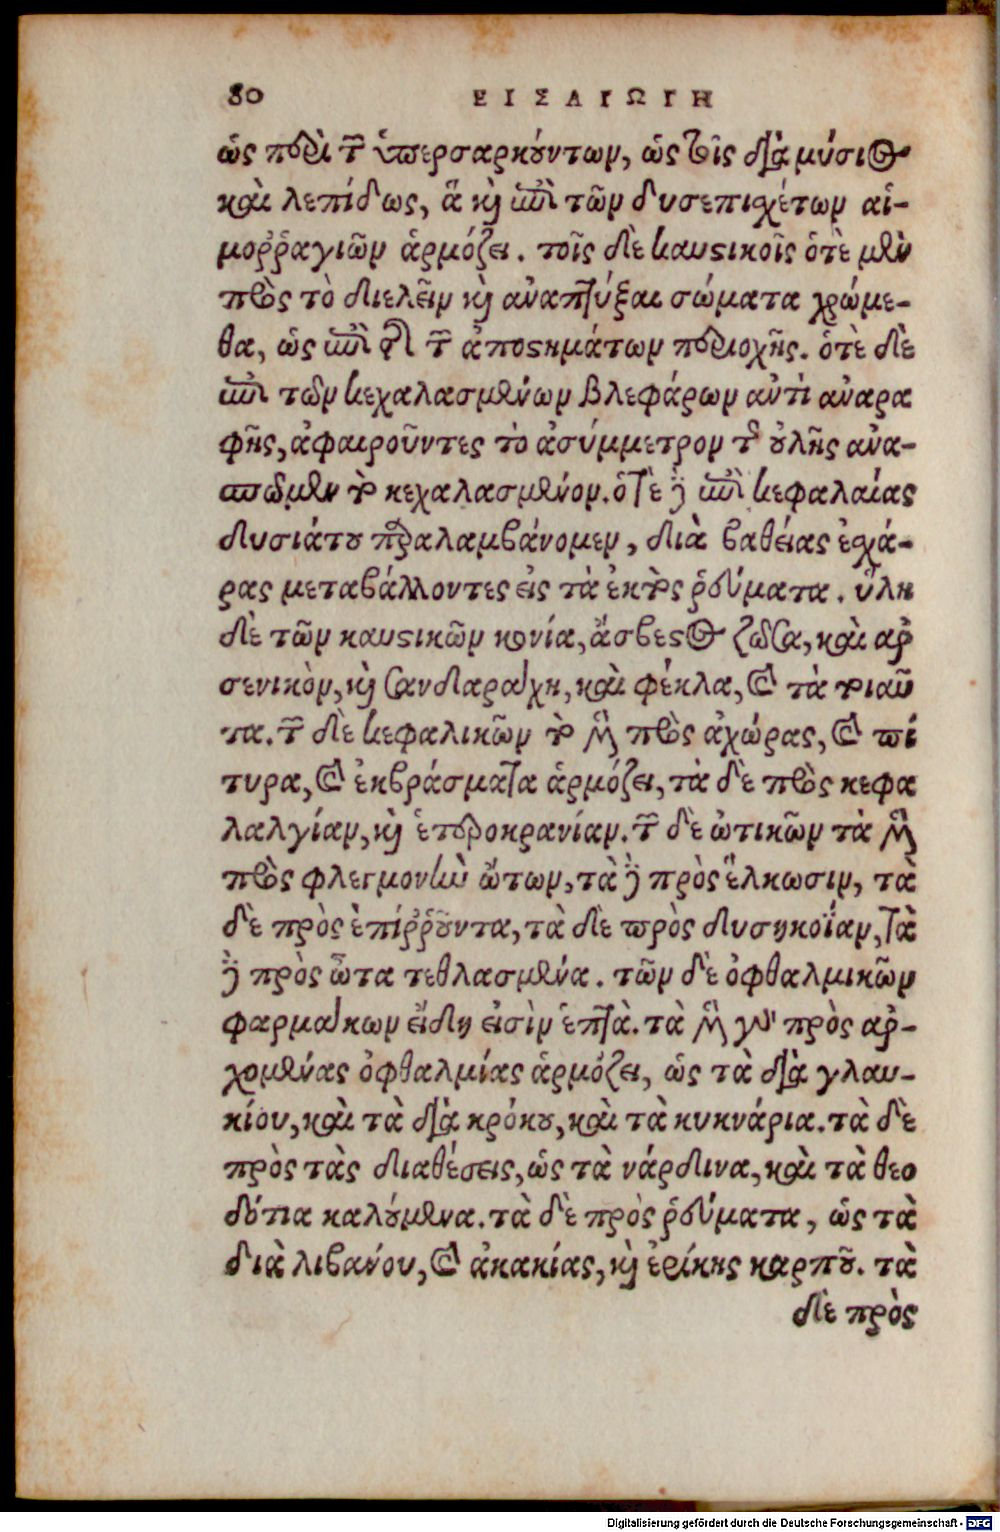 80 ΕΙΣΑΓΩΓΗ
ὡς περὶ τῶν ὑπερσαρκούντων, ὡς τοῖς διὰ μίσυος
καὶ λεπίδως, ἃ καὶ ἐπὶ τῶν δυσεπιχέτων αἱ-
μοῤῥαγιῶν ἁρμόζει. τοῖς δὲ καυστικοῖς ὁτὲ μὲν
πρὸς τὸ διελεῖν καὶ ἀναπτύξαι σώματα χρώμε-
θα, ὡς ἐπὶ τῆς τῶν ἀποστημάτων περιοχῆς. ὁτὲ δὲ
ἐπὶ τῶν κεχαλασμένων βλεφάρων ἀντὶ ἀναρα
φῆς, ἀφαιροῦντες τὸ ἀσύμμετρον τῆς οὐλῆς ἀνα-
σπῶμεν τὸ κεχαλασμένον. ὁτὲ δὲ ἐπὶ κεφαλαίας
δυσιάτου παραλαμβάνομεν, διὰ βαθείας ἐσχά-
ρας μεταβάλλοντες εἰς τὰ ἐκτὸς ῥεύματα. ὕλη
δὲ τῶν καυστικῶν κονία, ἄσβεστος ζῶσα, καὶ ἀρ
σενικὸν, καὶ σανδαράχη, καὶ φέκλα, καὶ τὰ τοιαῦ
τα. τῶν δὲ κεφαλικῶν τὸ μὲν πρὸς ἀχώρας, καὶ πί
τυρα, καὶ ἐκβράσματα ἁρμόζει, τὰ δὲ πρὸς κεφα
λαλγίαν, καὶ ἑτεροκρανίαν. τῶν δὲ ὠτικῶν τὰ μὲν
πρὸς φλεγμονὴν ὤτων, τὰ δὲ πρὸς ἕλκωσιν, τὰ
δὲ πρὸς ἐπίῤῥουντα, τὰ δὲ πρὸς δυσηκοΐαν, τὰ
δὲ πρὸς ὦτα τεθλασμένα. τῶν δὲ ὀφθαλμικῶν
φαρμάκων εἴδη εἰσὶν ἑπτά. τὰ μὲν γὰρ πρὸς ἀρ-
χομένας ὀφθαλμίας ἁρμόζει, ὡς τὰ διὰ γλαυ-
κίου, καὶ τὰ διὰ κρόκου, καὶ τὰ κυκνάρια. τὰ δὲ
πρὸς τὰς διαθέσεις, ὡς τὰ νάρδινα, καὶ τὰ θεο
δότια καλούμενα. τὰ δὲ πρὸς ῥεύματα, ὡς τὰ
διὰ λιβάνου, καὶ ἀκακίας, καὶ ἐρίκης καρποῦ. τὰ
δὲ πρὸς
Digitalisierung gefördert durch die Deutsche Forschungsgemeinschaft - DFG